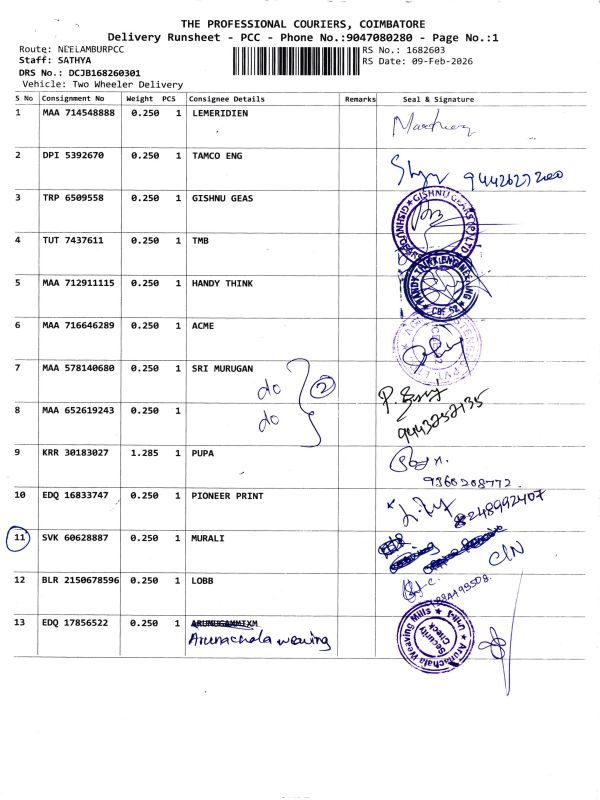 THE PROFESSIONAL COURIERS, COIMBATORE
Delivery Runsheet - PCC - Phone No.:9047080280 - Page No.:1
Route: NEELAMBURPCC RS No.: 1682603
Staff: SATHYA RS Date: 09-Feb-2026
DRS No.: DCJB168260301
Vehicle: Two Wheeler Delivery
S No Consignment No Weight PCS Consignee Details Remarks Seal & Signature
1 MAA 714548888 0.250 1 LEMERIDIEN
2 DPI 5392670 0.250 1 TAMCO ENG
3 TRP 6509558 0.250 1 GISHNU GEAS
GISHNU GEARS (P) LTD
4 TUT 7437611 0.250 1 TMB
5 MAA 712911115 0.250 1 HANDY THINK
HANDY THINK ENGINEERING
CBE 62
6 MAA 716646289 0.250 1 ACME
7 MAA 578140680 0.250 1 SRI MURUGAN
do 2
8 MAA 652619243 0.250 1
do
9443252135
9 KRR 30183027 1.285 1 PUPA
9360208772
10 EDQ 16833747 0.250 1 PIONEER PRINT
8248992407
11 SVK 60628887 0.250 1 MURALI
CIN
12 BLR 2150678596 0.250 1 LOBB
13 EDQ 17856522 0.250 1
Arunachala weaving
Arunachala Weaving Mills
Unit-3
Security
Check